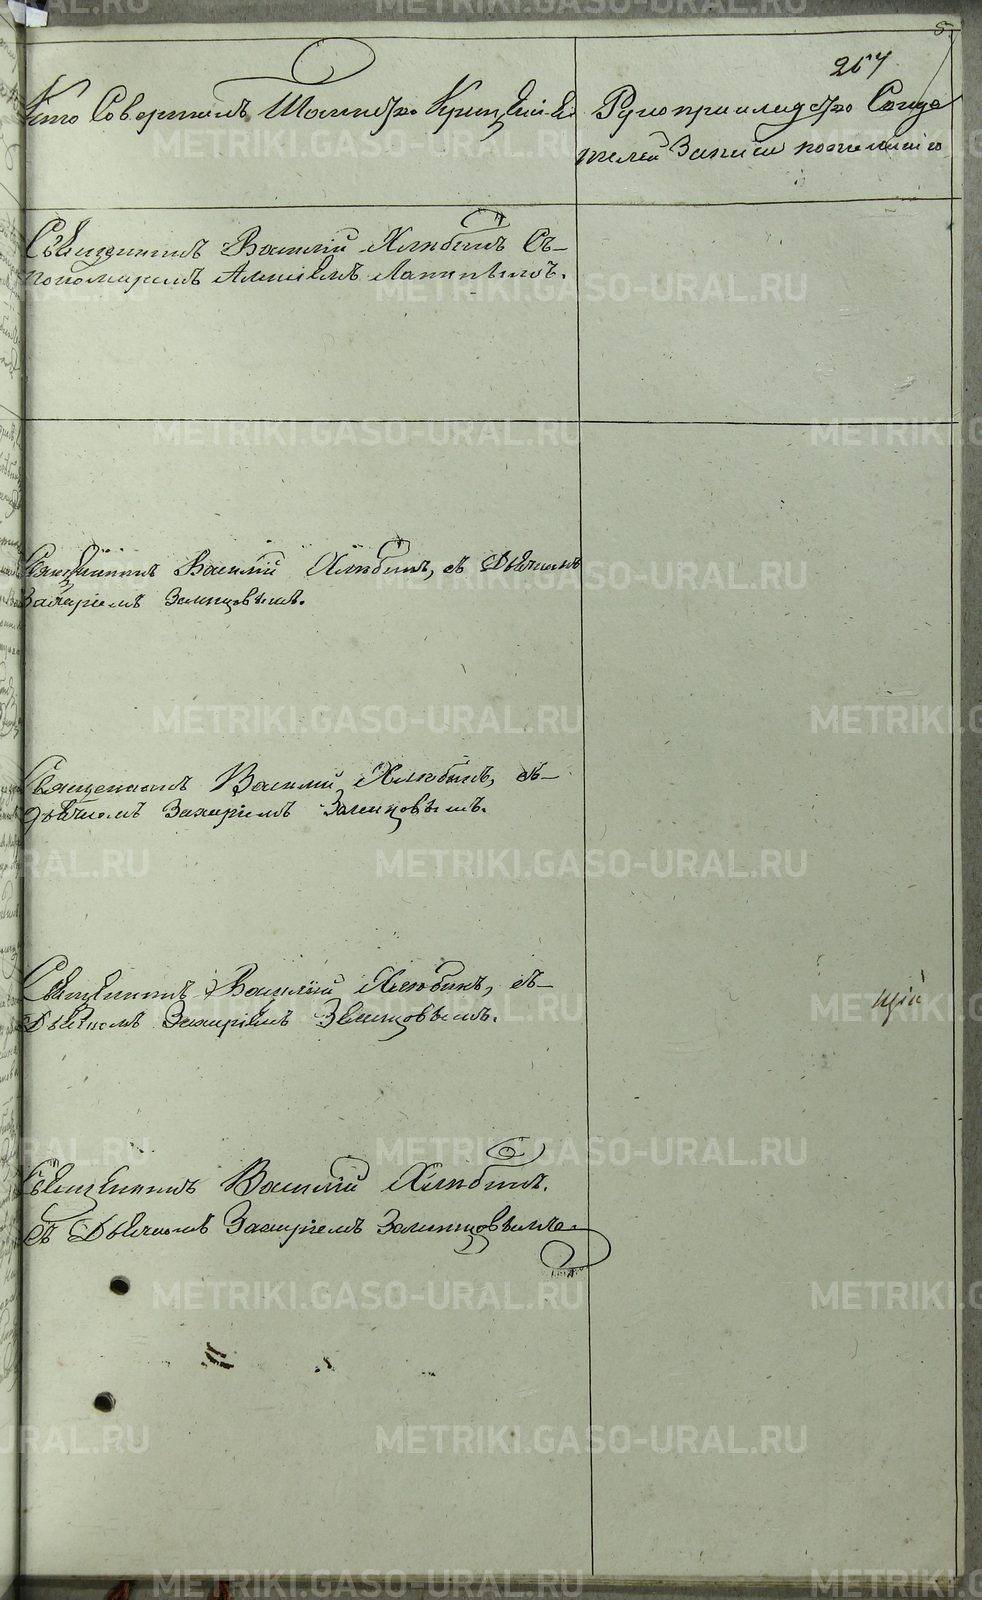 5
267
Кто Совершалъ Таинство Крещенія
Рукоприкладство Свиде
телей Записи по желанію
Священникъ Василій Хлюбинъ Съ
пономаремъ Алексіемъ
Священникъ Василій Хлюбинъ, съ Дьячкомъ
Захаріемъ Земляновымъ.
Священникъ Василій Хлюбинъ, съ
дьячкомъ Захаріемъ
Священникъ Василій Хлюбинъ, съ
Дьячкомъ Захаріемъ
Священникъ Василій Хлюбинъ.
съ Дьячкомъ Захаріемъ
щій
METRIKI.GASO-URAL.RU